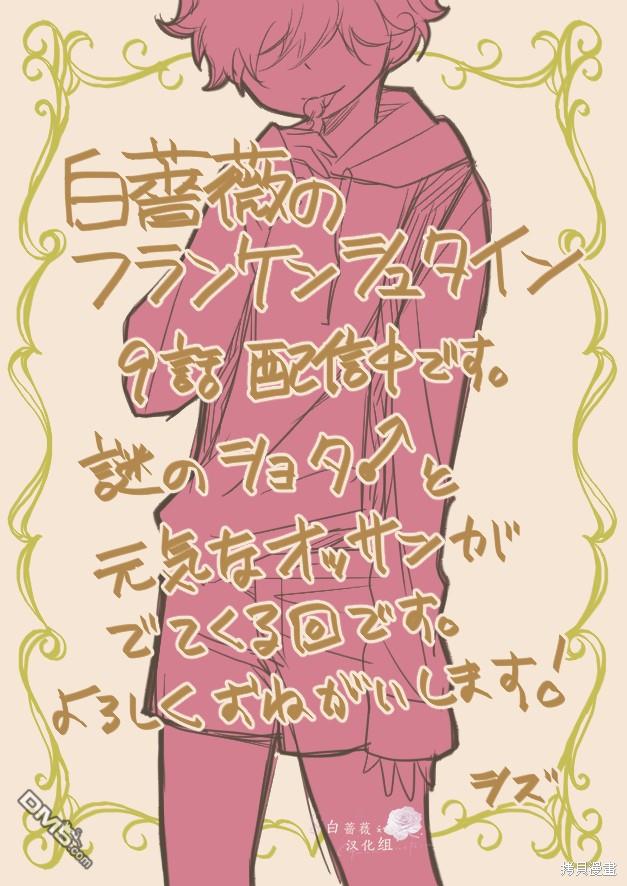 白薔薇の
フランケンシュタイン
9話 配信中です。
謎のショタ♂と
元気なオッサンが
でてくる回です。
よろしくおねがいします!
シズ
白薔薇
汉化组
DM5.com
拷貝漫畫